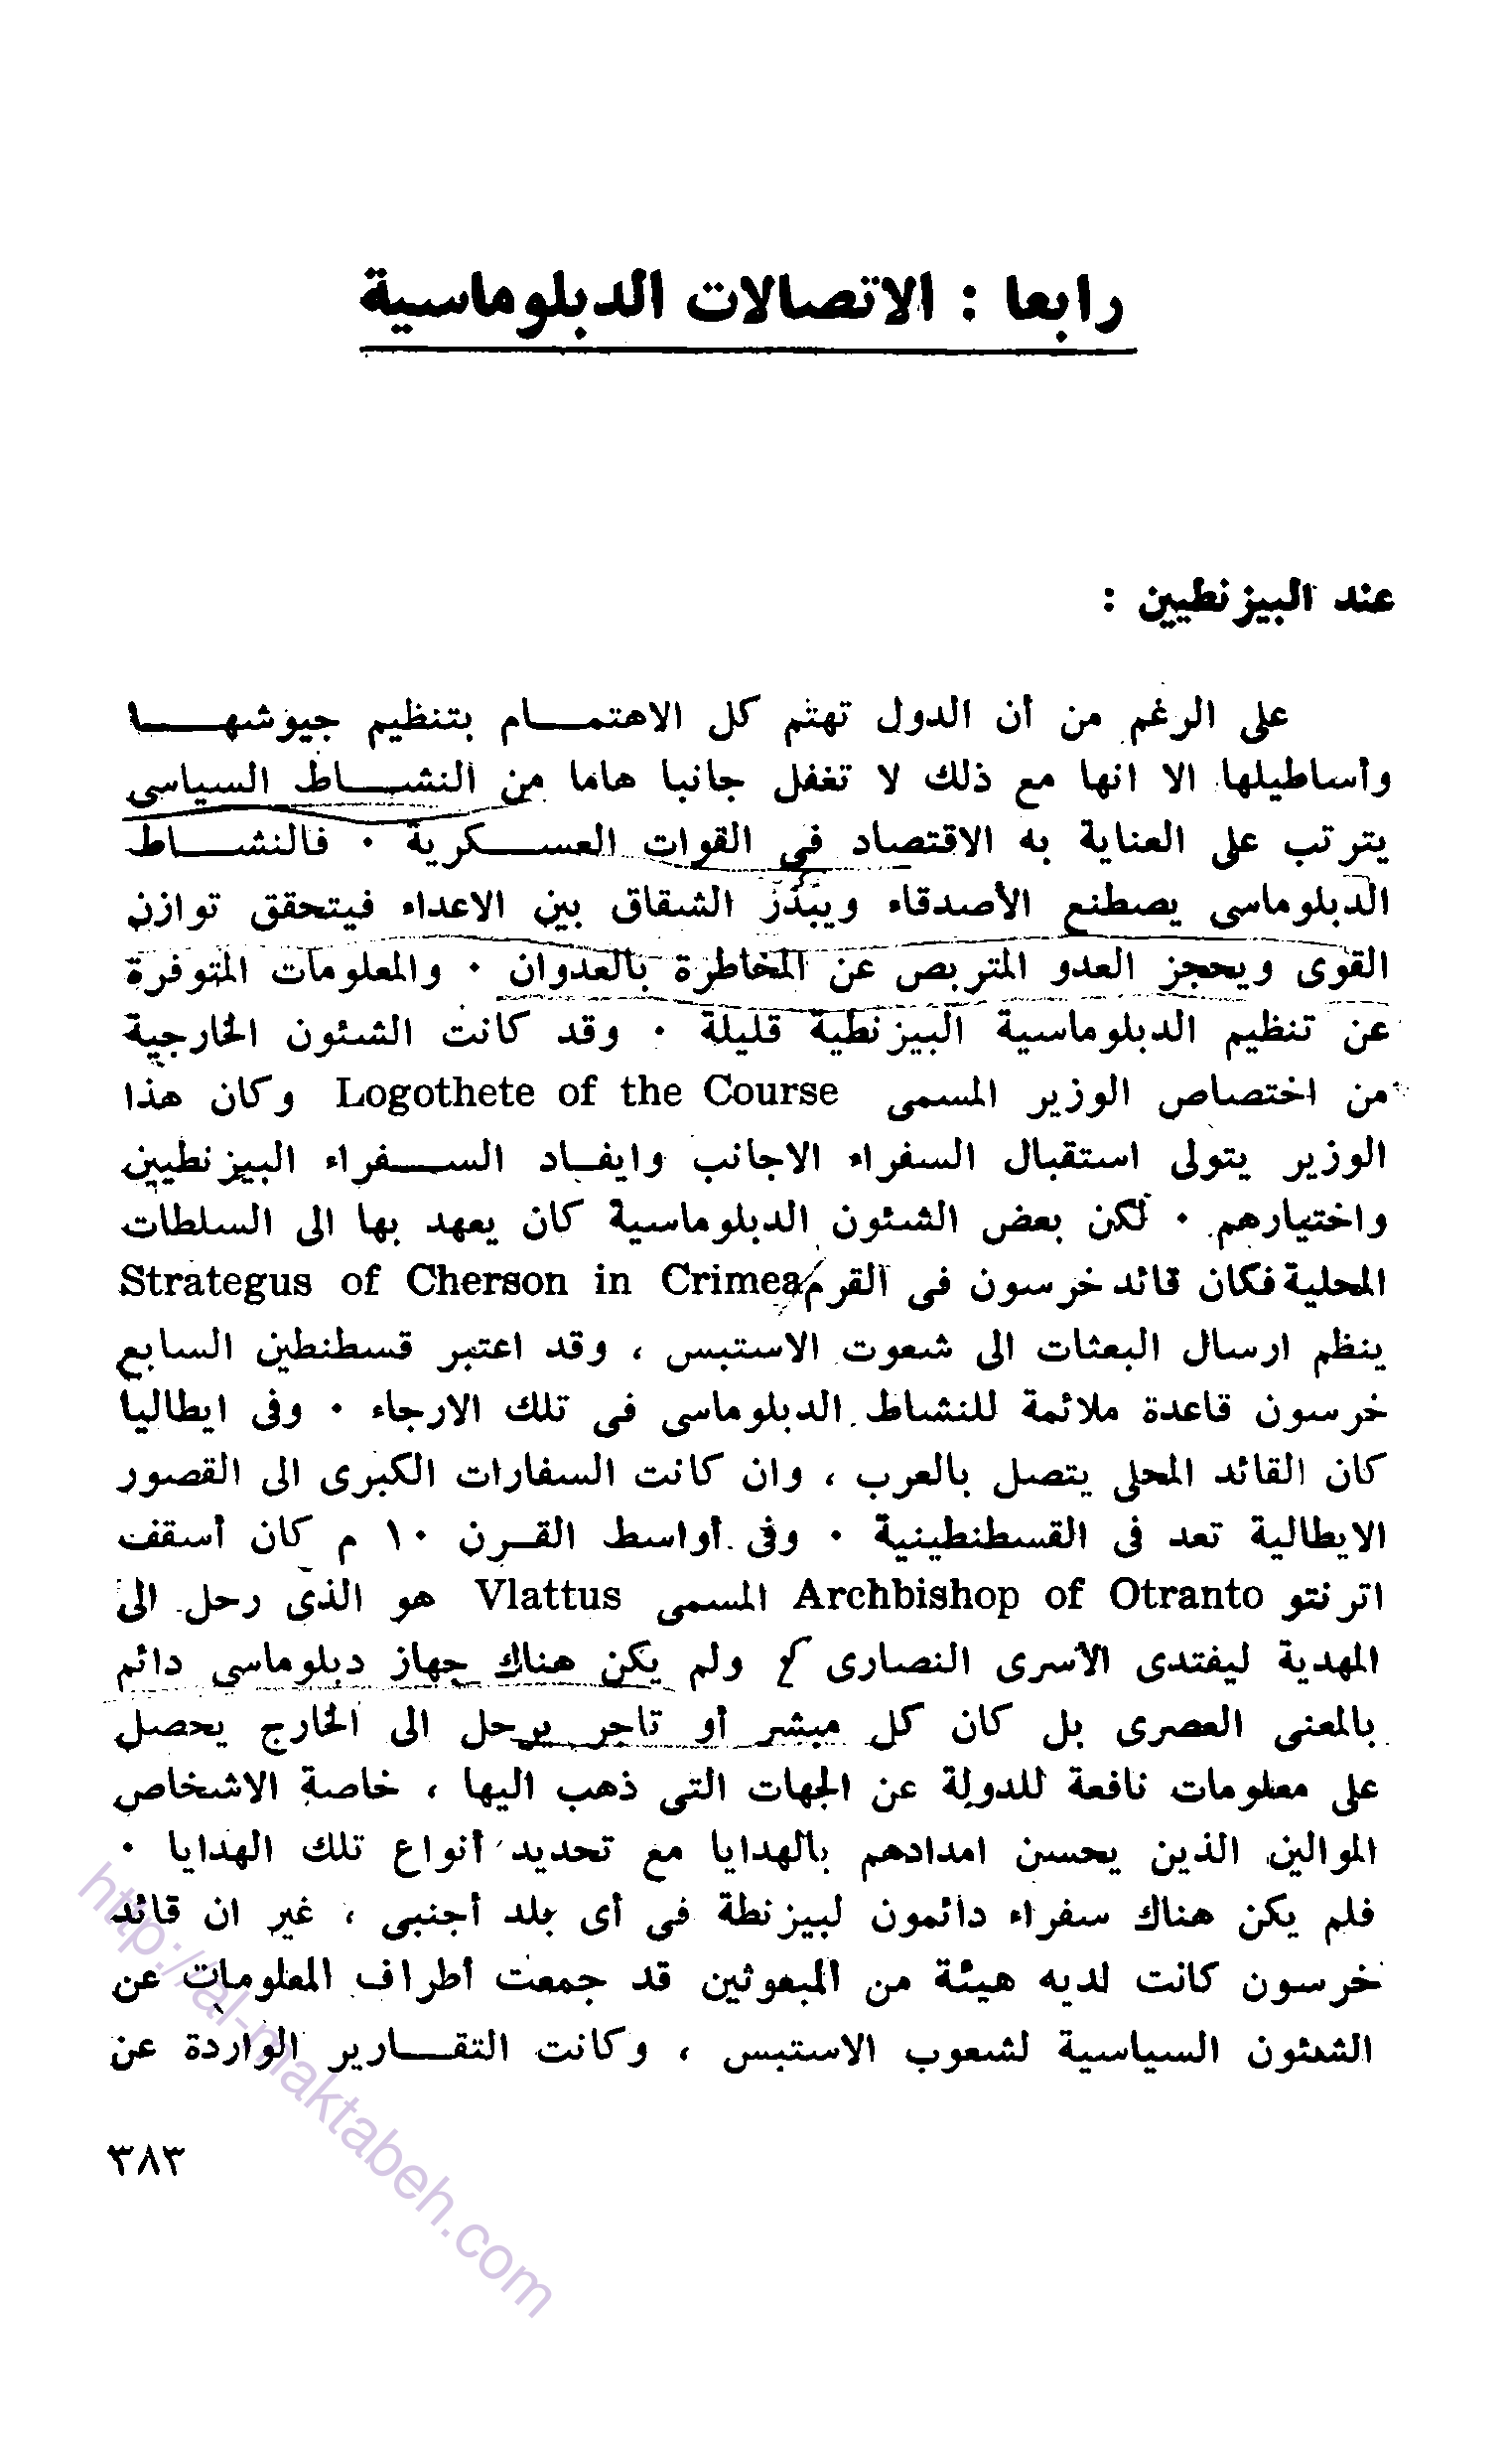 رابعا : الاتصالات الدبلوماسية
عند البيزنطيين :
على الرغم من أن الدول تهتم كل الاهتمام بتنظيم جيوشها
وأساطيلها الا انها مع ذلك لا تغفل جانبا هاما من النشاط السياسى
يترتب على العناية به الاقتصاد فى القوات العسكرية ٠ فالنشاط
الدبلوماسى يصطنع الأصدقاء ويبذر الشقاق بين الاعداء فيتحقق توازن
القوى ويحجز العدو المتربص عن المخاطرة بالعدوان ٠ والمعلومات المتوفرة
عن تنظيم الدبلوماسية البيزنطية قليلة ٠ وقد كانت الشئون الخارجية
من اختصاص الوزير المسمى Logothete of the Course وكان هذا
الوزير يتولى استقبال السفراء الاجانب وايفاد السفراء البيزنطيين
واختيارهم ٠ لكن بعض الشئون الدبلوماسية كان يعهد بها الى السلطات
المحلية فكان قائد خرسون فى القرم Strategus of Cherson in Crimea
ينظم ارسال البعثات الى شعوت الاستبس ، وقد اعتبر قسطنطين السابع
خرسون قاعدة ملائمة للنشاط الدبلوماسى فى تلك الارجاء ٠ وفى ايطاليا
كان القائد المحلى يتصل بالعرب ، وان كانت السفارات الكبرى الى القصور
الايطالية تعد فى القسطنطينية ٠ وفى أواسط القرن ١٠ م كان أسقف
اترنتو Archbishop of Otranto المسمى Vlattus هو الذى رحل الى
المهدية ليفتدى الأسرى النصارى ولم يكن هناك جهاز دبلوماسى دائم
بالمعنى العصرى بل كان كل مبشر أو تاجر يرحل الى الخارج يحصل
على معلومات نافعة للدولة عن الجهات التى ذهب اليها ، خاصة الاشخاص
الموالين الذين يحسن امدادهم بالهدايا مع تحديد أنواع تلك الهدايا ٠
فلم يكن هناك سفراء دائمون لبيزنطة فى أى بلد أجنبى ، غير ان قائد
خرسون كانت لديه هيئة من المبعوثين قد جمعت أطراف المعلومات عن
الشئون السياسية لشعوب الاستبس ، وكانت التقارير الواردة عن
٣٨٣
http://al-maktabeh.com